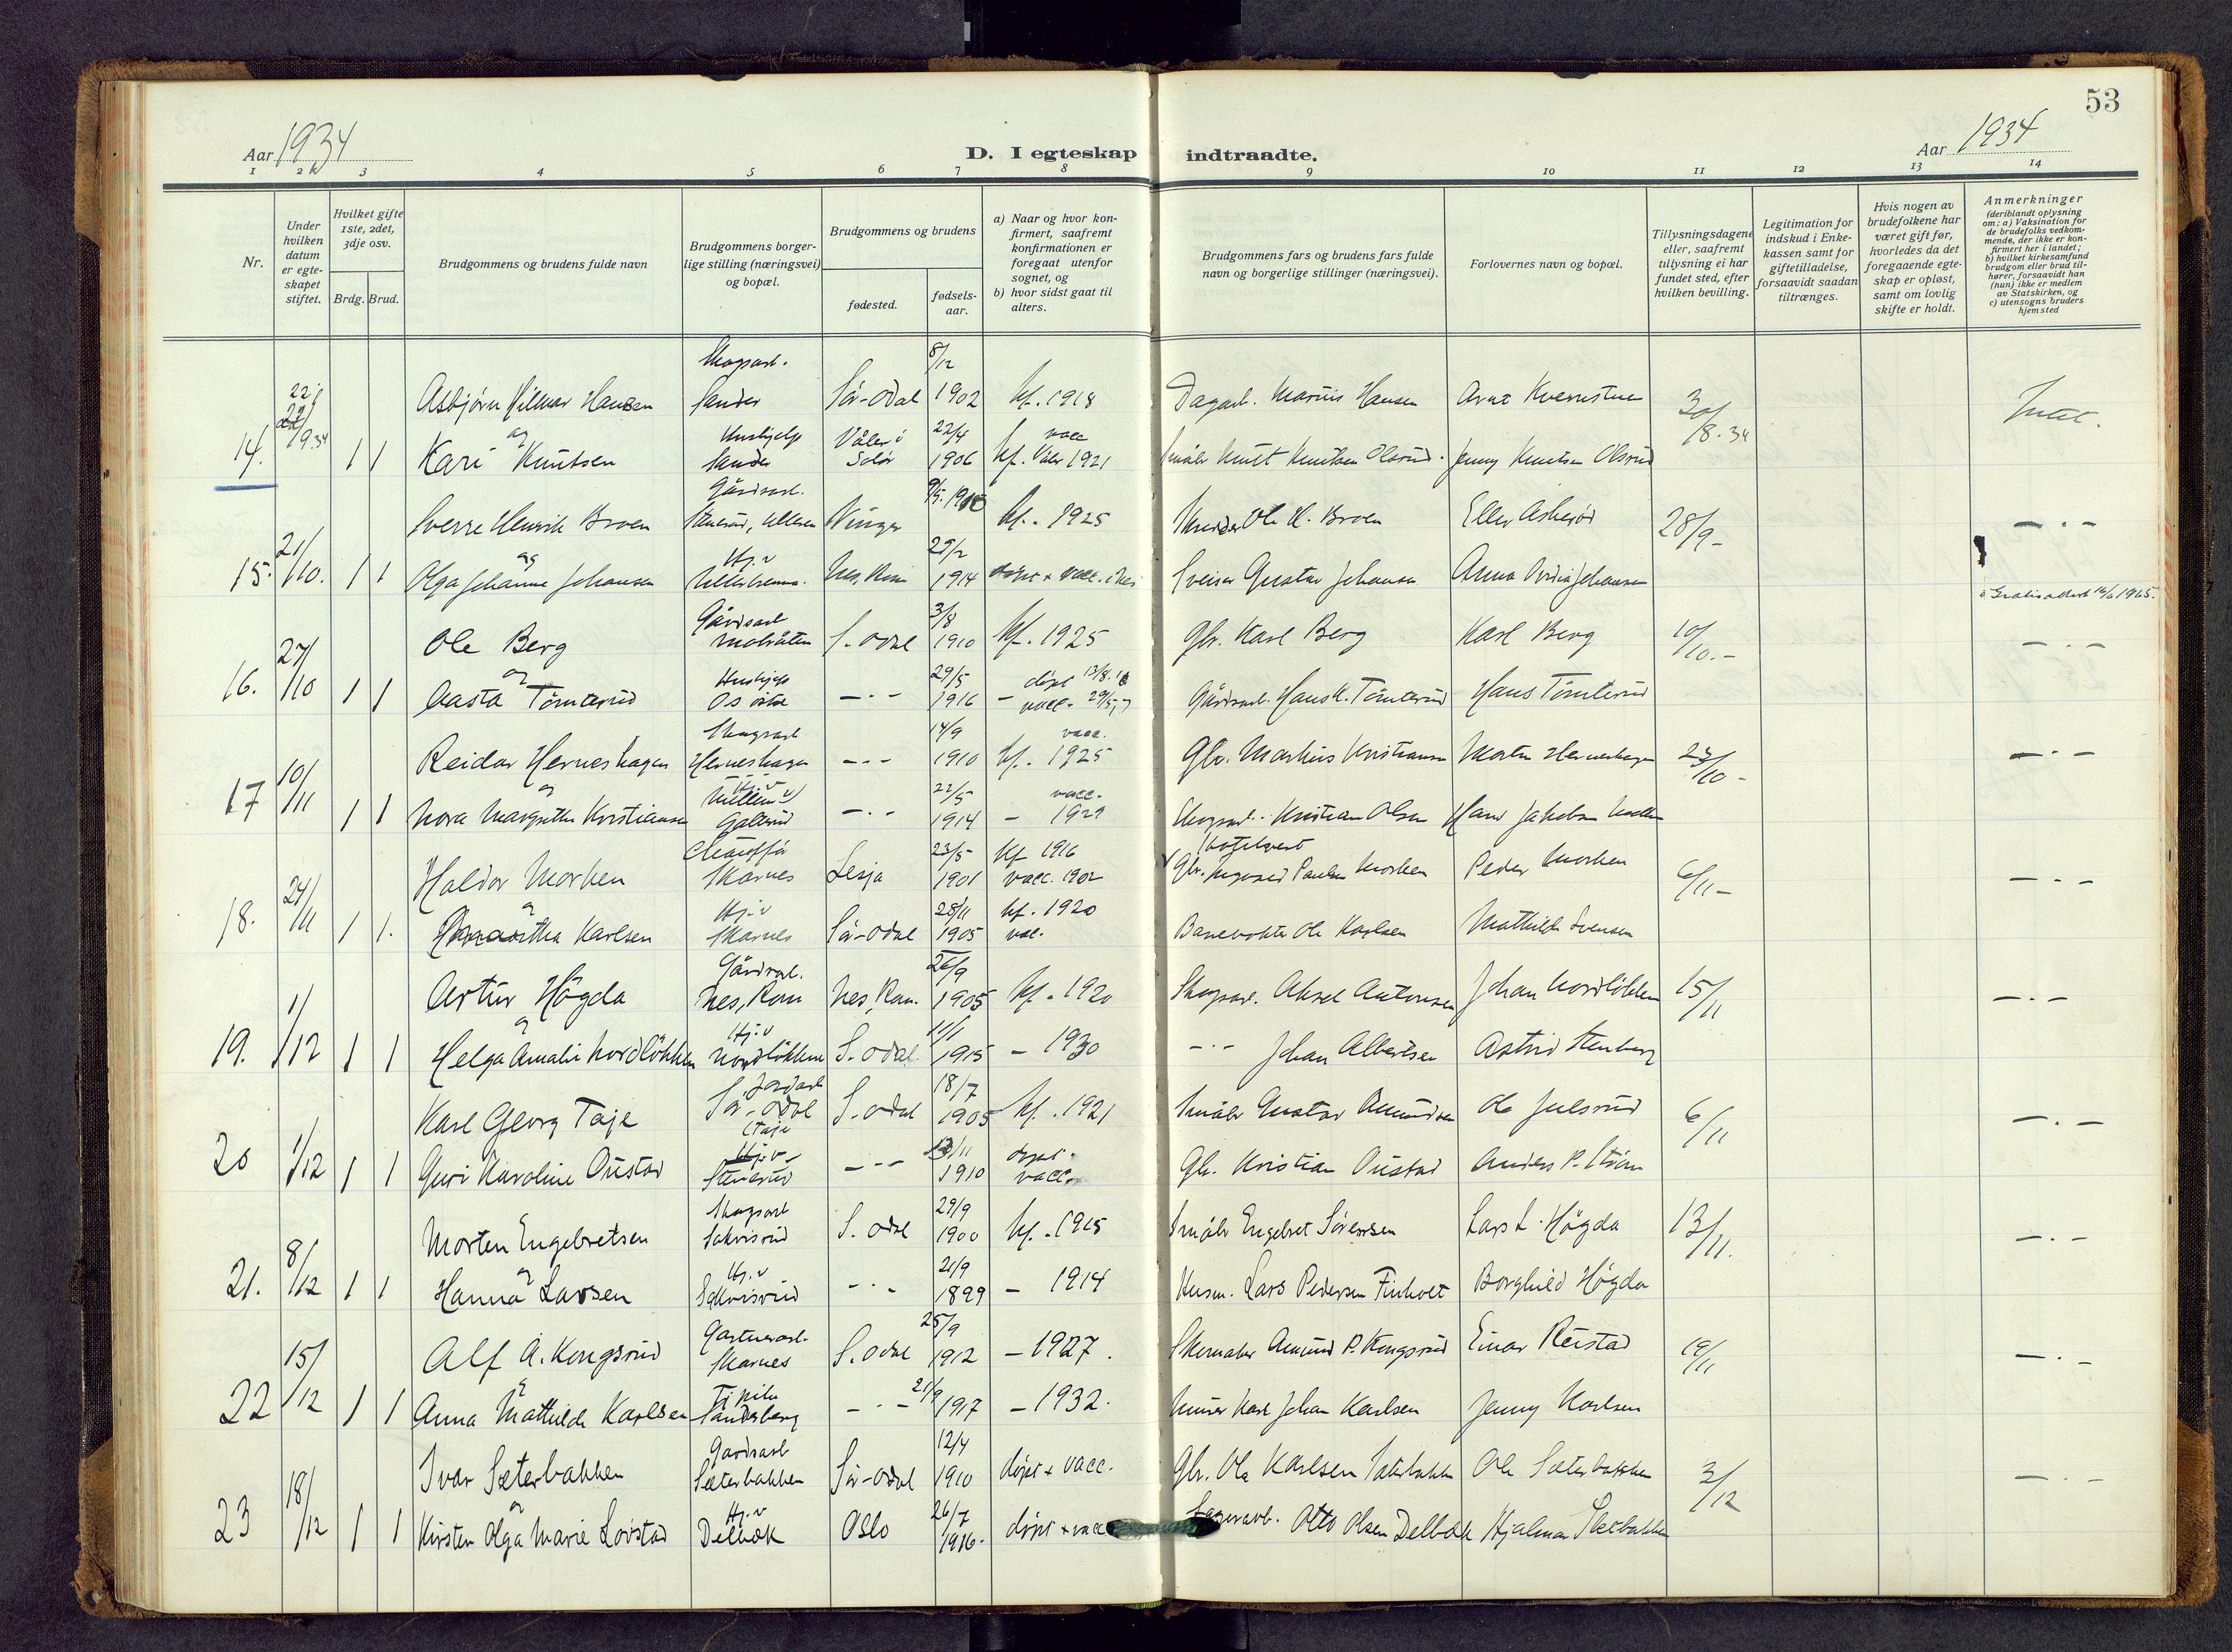 53
Aar 1934
D. I egteskap indtraadte.
Aar 1934
1 2 3 4 5 6 7 8 9 10 11 12 13 14
Nr.
Under hvilken datum er egteskapet stiftet.
Hvilket gifte 1ste, 2det, 3dje osv.
Brdg. Brud.
Brudgommens og brudens fulde navn
Brudgommens borgerlige stilling (næringsvei) og bopæl.
Brudgommens og brudens
fødested.
fødselsaar.
a) Naar og hvor konfirmert, saafremt konfirmationen er foregaat utenfor sognet, og
b) hvor sidst gaat til alters.
Brudgommens fars og brudens fars fulde navn og borgerlige stillinger (næringsvei).
Forlovernes navn og bopæl.
Tillysningsdagene eller, saafremt tillysning ei har fundet sted, efter hvilken bevilling.
Legitimation for indskud i Enkekassen samt for giftetilladelse, forsaavidt saadan tiltrænges.
Hvis nogen av brudefolkene har været gift før, hvorledes da det foregaaende egteskap er opløst, samt om lovlig skifte er holdt.
Anmerkninger
(deriblandt oplysning om: a) Vaksination for de brudefolks vedkommende, der ikke er konfirmert her i landet;
b) hvilket kirkesamfund brudgom eller brud tilhører, forsaavidt han (hun) ikke er medlem av Statskirken, og
c) utensogns bruders hjemsted
Skogsarb. 8/12
Asbjørn Hilmar Hansen Sander Sør-Odal 1902 kf. 1918 Dagarb. Marius Hansen Arne 30/8.34
og Hushjelp Våler i 22/4 vacc
14. 22/9.34 1 1 Kari Knutsen Sander Solør 1906 kf. Våler 1921 Småbr Knut Knutsen Olsrud. Jenny Knutsen Olsrud
Gårdsarb. 9/5.1910
Sverre Henrik Broen Vinger kf. 1925 Skredder Ole H. Broen 28/9 - - . -
15. 21/10. 1 1 og Hj.v
Olga Johanne Johansen Nes, Rom 1914 døpt + vacc. i Nes Sveiser Gustav Johansen Anna Johansen
Gratisattest 1965.
Gårdsarb 3/8
Ole Berg S. Odal 1910 kf. 1925 Gbr. Karl Berg Karl Berg 10/10. - - . -
og Hushjelp 29/5 døpt 13/8.16
16. 27/10 1 1 Aasta Tömterud Os østre - . - 1916 - vacc. Gårdsarb. Hans K. Tömterud Hans Tömterud
Skogsarb 14/9 vacc.
Reidar Herneshagen Herneshagen - . - 1910 kf. 1925 Gbr. Markus Kristiansen Morten Herneshagen 23/10 - - . -
og 22/5 vacc.
17 10/11 1 1 Nora Margrethe Kristiansen Galterud - . - 1914 - 1929 Skogsarb. Kristian Olsen Hans Jakobsen
Chauffør 23/5 kf 1916 Hotelvert
Haldor Morken Skarnes Lesja 1901 vacc. 1902 Gbr. Paulsen Morken Peder Morken 6/11 - - . -
og Hj.v 28/11 kf. 1920
18. 24/11 1 1. Karlsen Skarnes Sør-Odal 1905 vac. Banevokter Ole Karlsen Mathilde Svensen
Gårdsarb. 26/9
Artur Högda Nes, Rom Nes, Rom. 1905 kf. 1920 Skogsarb. Aksel Antonsen Johan Nordlökken 15/11 - . -
og Hj.v 11/1
19. 1/12 1 1 Helga Amalie Nordlökken Nordlökken S. Odal 1915 - 1930 - . - Johan Albertsen Astrid Stenberg
Jordarb 18/7
Karl Georg Taje Sør-Odal S. Odal 1905 kf. 1921 Småbr Gustav Amundsen Ole Julsrud 6/11 - . -
Taje
Hj.v 13/11 døpt.
20 1/12 1 1 Guri Karoline Oustad Stenerud - . - 1910 vacc. Gbr. Kristian Oustad Anders P. Ström
Skogsarb 29/9
Morten Engebretsen Sakrisrud S. Odal 1900 kf. 1915 Småbr Engebret Sörensen Lars L. Högda 13/11. - . -
og Hj.v 21/9
21. 8/12 1 1 Hanna Larsen Sakrisrud - . - 1899 - 1914 Husm. Lars Pedersen Finholt Borghild Högda
Gartnerarb. 25/9
Alf A. Kongsrud Skarnes S. Odal 1912 - 1927. Skomaker Amund P. Kongsrud Einar Reistad 19/11 - . -
og 21/9
22 15/12 1 1 Anna Mathilde Karlsen Sandsberg - . - 1917 - 1932. Murer Karl Johan Karlsen Jenny Karlsen
Gårdsarb 12/4
Ivar Sæterbakken Sæterbakken Sør-Odal 1910 døpt + vacc. Gbr. Ole Karlsen Sæterbakken Ole Sæterbakken 3/12 - . -
og Hj.v 26/7
23 18/12 1 1 Kirsten Olga Marie Lövstad Delbæk Oslo 1916. døpt + vacc Lagerarb. Otto Olsen Delbæk Hjalmar Sæterbakken